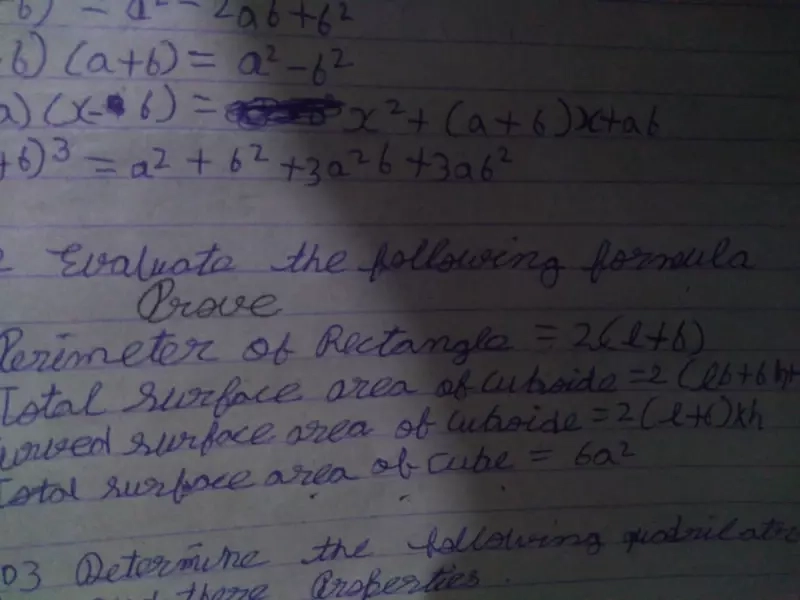 b) = a² - 2ab + b²
b) (a+b) = a² - b²
a) (x- b) = x² + (a+b)x+ab
+b)³ = a² + b² + 3a²b + 3ab²
Evaluate the following formula
Prove
Perimeter of Rectangle = 2(l+b)
Total surface area of cuboide = 2 (lb+bh+
surface area of cuboide = 2(l+b)xh
Total surface area of cube = 6a²
03 Determine the following
there Properties.